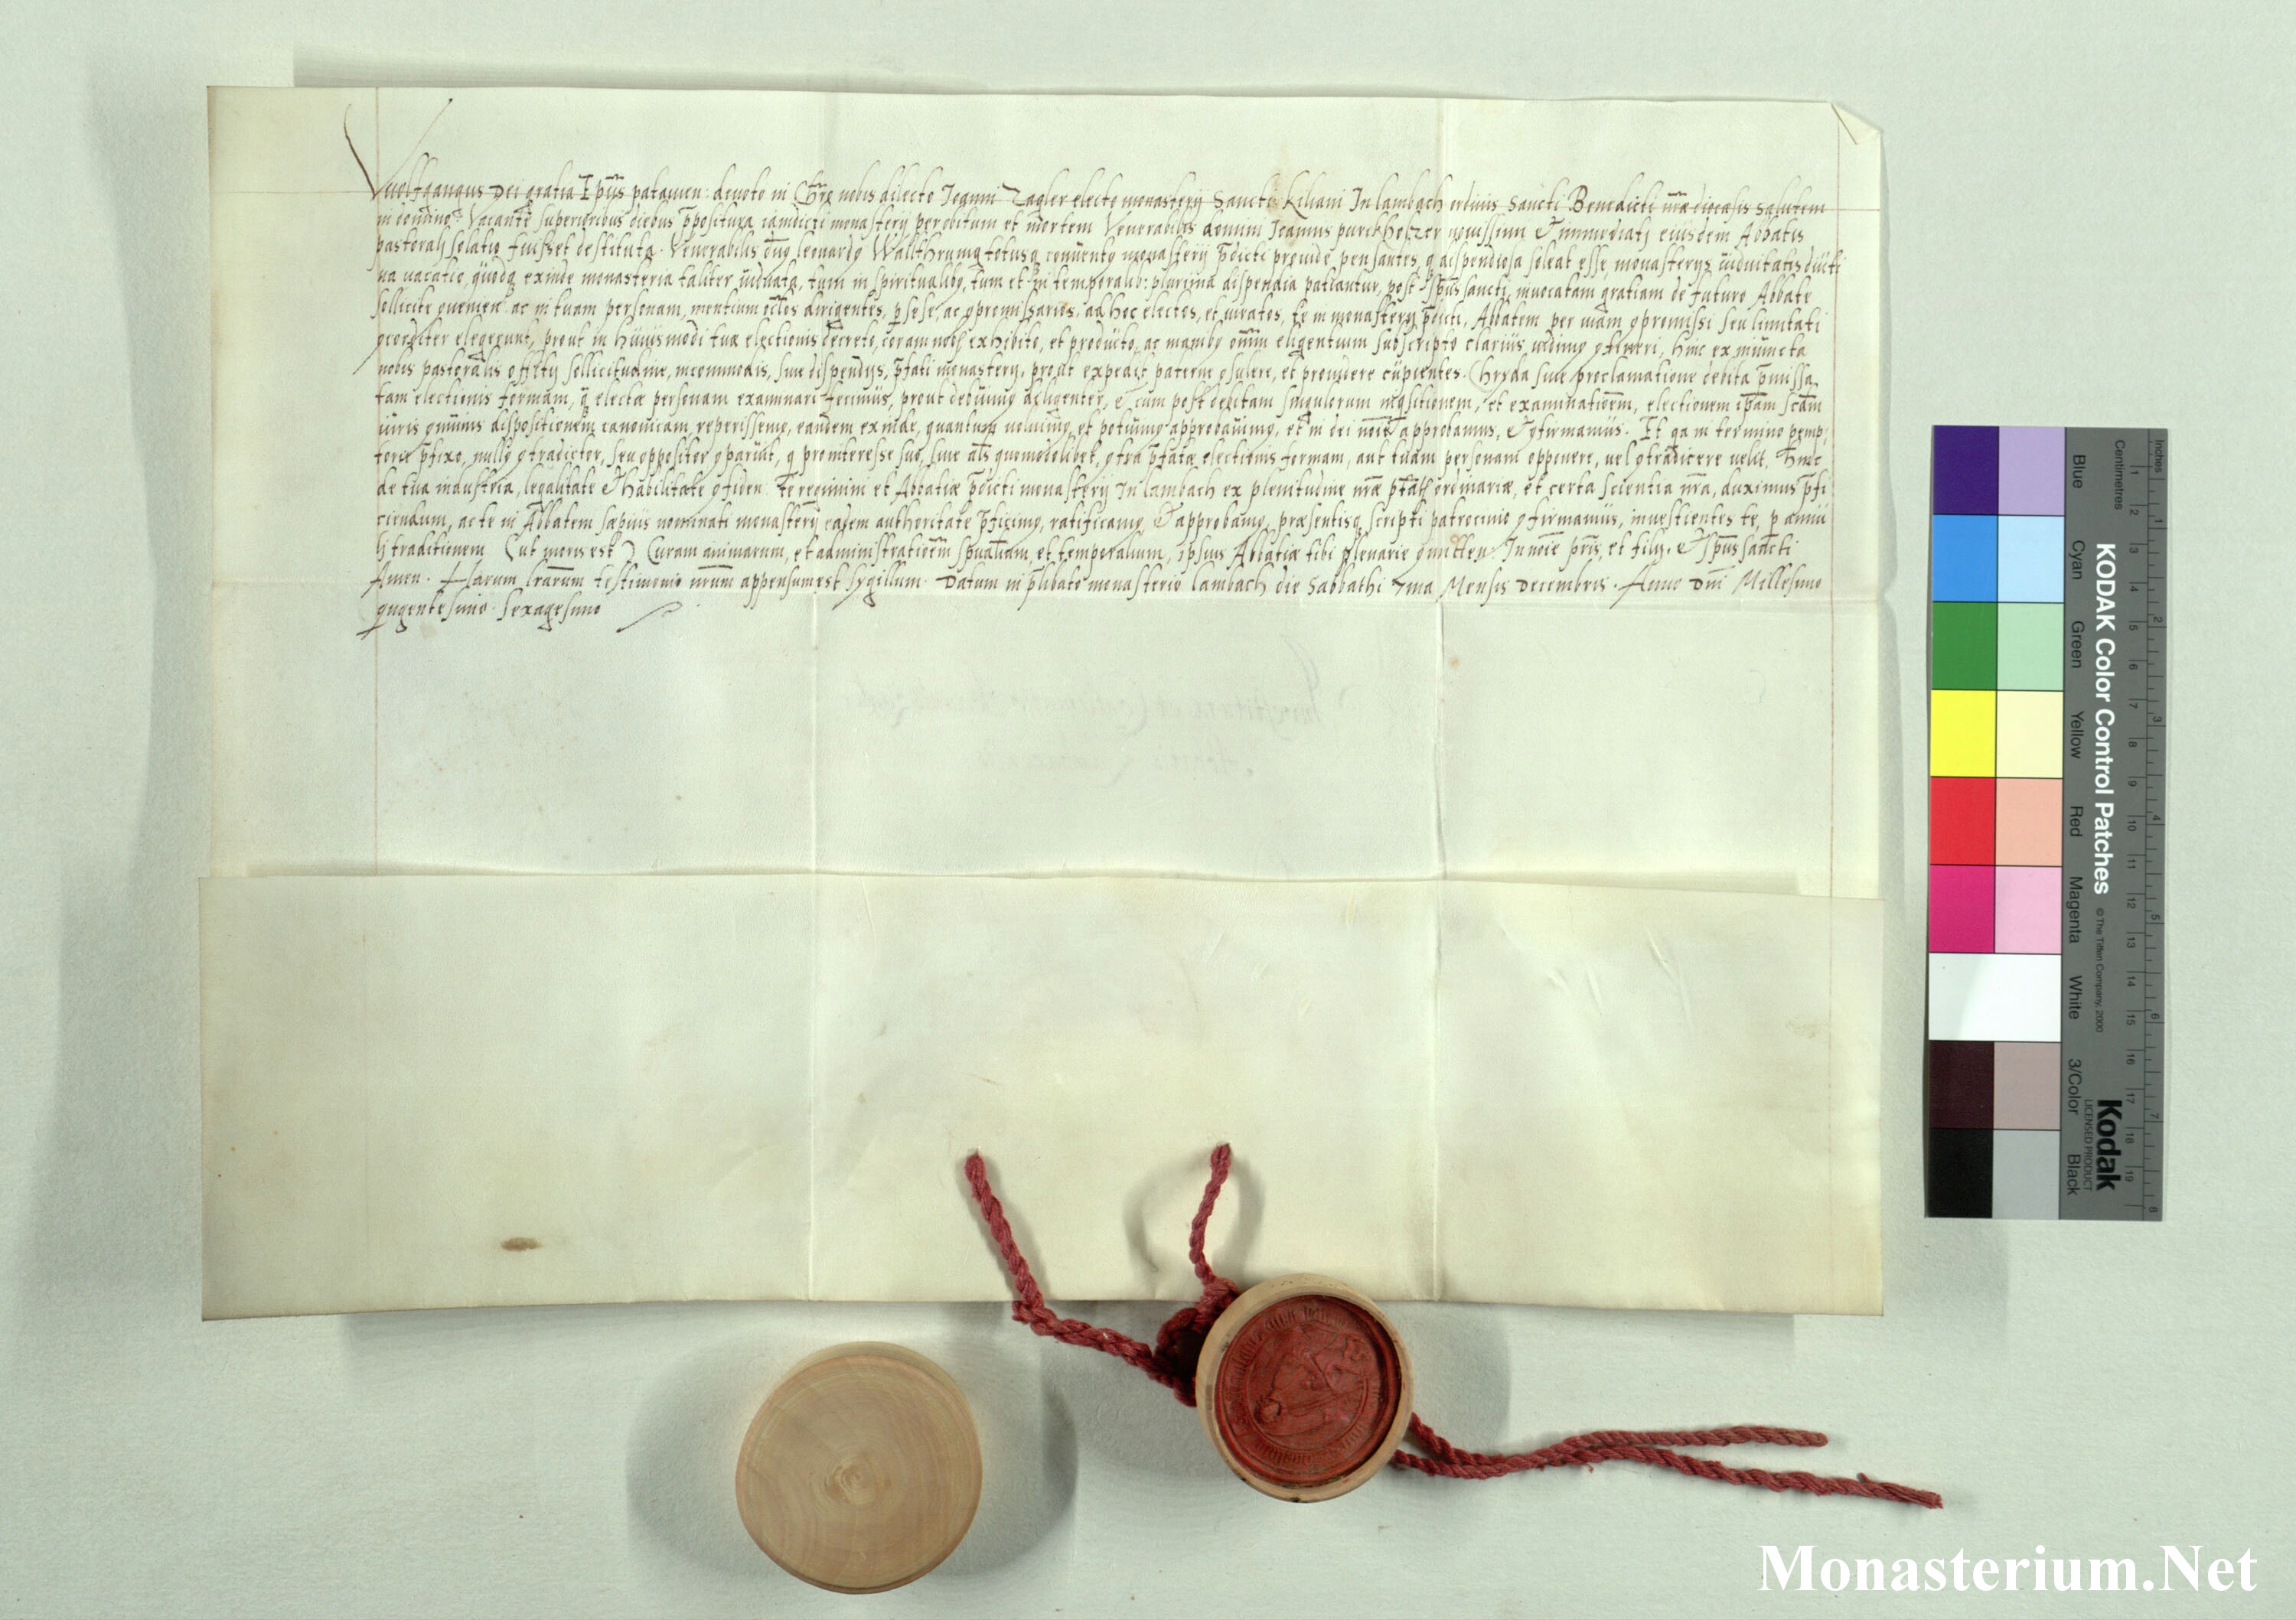 Wolfgangus Dei gratia Ep̄us patauien: deuoto in Chr̄o nobis dilecto Joanni Zagler electo monasterij Sancti Kiliani In lambach ordinis Sancti Benedicti nr̄æ diocæsis Salutem
in domino. Vacante superioribus diebus p̄positura iamdicti monasterij per obitum et mortem Venerabilis domini Joannis purckholzer nouissimi & immediati eiusdem Abbatis
pastorali solatio fuisset destituta. Venerabilis dn̄s leonardus totusq conuentus monasterij p̄dicti prouide pensantes, q dispendiosa soleat esse monasterijs uiduitatis diuti
na uacatio, quodq exinde monasteria taliter uiduata, tum in spiritualibus, tum et in temporalib: plurima dispendia patiantur, post Sp̄us sancti inuocatam gratiam de futuro Abbate
sollicite ac in tuam personam, mentium oc̄los dirigentes, p sese, ac compromissarios, ad hoc electos, et iuratos, te in monasterij p̄dicti, Abbatem per uiam compromissi seu limitati
concorditer elegerunt, prout in huiusmodi tuæ electionis decreto, coram nobis exhibito, et producto, ac manibus om̄m eligentium subscripto clarius uidimus contineri, Hinc ex iniuncta
nobis pastoralis officij sollicitudine, incommodis, siue dispendijs, p̄fati monasterij, prout expedit paterne consulere, et prouidere cupientes. Chryda siue proclamatione debita p̄missa
tam electionis formam, q electæ personam examinari fecimus, prout debuimus diligenter, & cum post debitam singulorum inqsitionem, et examinatioēm, electionem ip̄am scd̄m
iuris communis dispositionem canonicam reperissemus, eandem exinde, quantum uoluimus, et potuimus approbauimus, et in dei noīe approbamus, & confirmamus. Et qa in termino peremp
torie p̄fixo, nullus contradictor, seu oppositor comparuit, q pro interesse suo, siue al̄s quomodolibet, contra p̄fatæ electionis formam, aut tuam personam opponere, uel contradicere uelit, Hinc
de tua industria, legalitate & habilitate confiden: te regimini et Abbatiæ p̄dicti monasterij In lambach ex plenitudine nr̄æ ordinariæ, et certa scientia nr̄a, duximus p̄fi
ciendum, ac te in Abbatem sæpius nominati monasterij eadem authoritate p̄ficimus, ratificamus & approbamus præsentisq scripti patrocinio confirmamus, inuestientes te, p annu
li traditionem (ut moris est) Curam animarum, et administratioēm sp̄ualium, et temporalium, ipsius Abbatiæ tibi plenarie In noīe pr̄is, et filij, & Sp̄us sancti
Amen. Harum lr̄arum testimonio nr̄um appensum est sygillum. Datum in p̄libato monasterio lambach die Sabbathi 7ma Mensis Decembris. Anno Dn̄i Millesimo
qngentesimo Sexagesimo
KODAK Color Control Patches
© The Tiffen Company, 2000
Kodak
LICENSED PRODUCT
Blue Cyan Green Yellow Red Magenta White 3/Color Black
Centimetres 1 2 3 4 5 6 7 8 9 10 11 12 13 14 15 16 17 18 19
Inches 1 2 3 4 5 6 7 8
Monasterium.Net